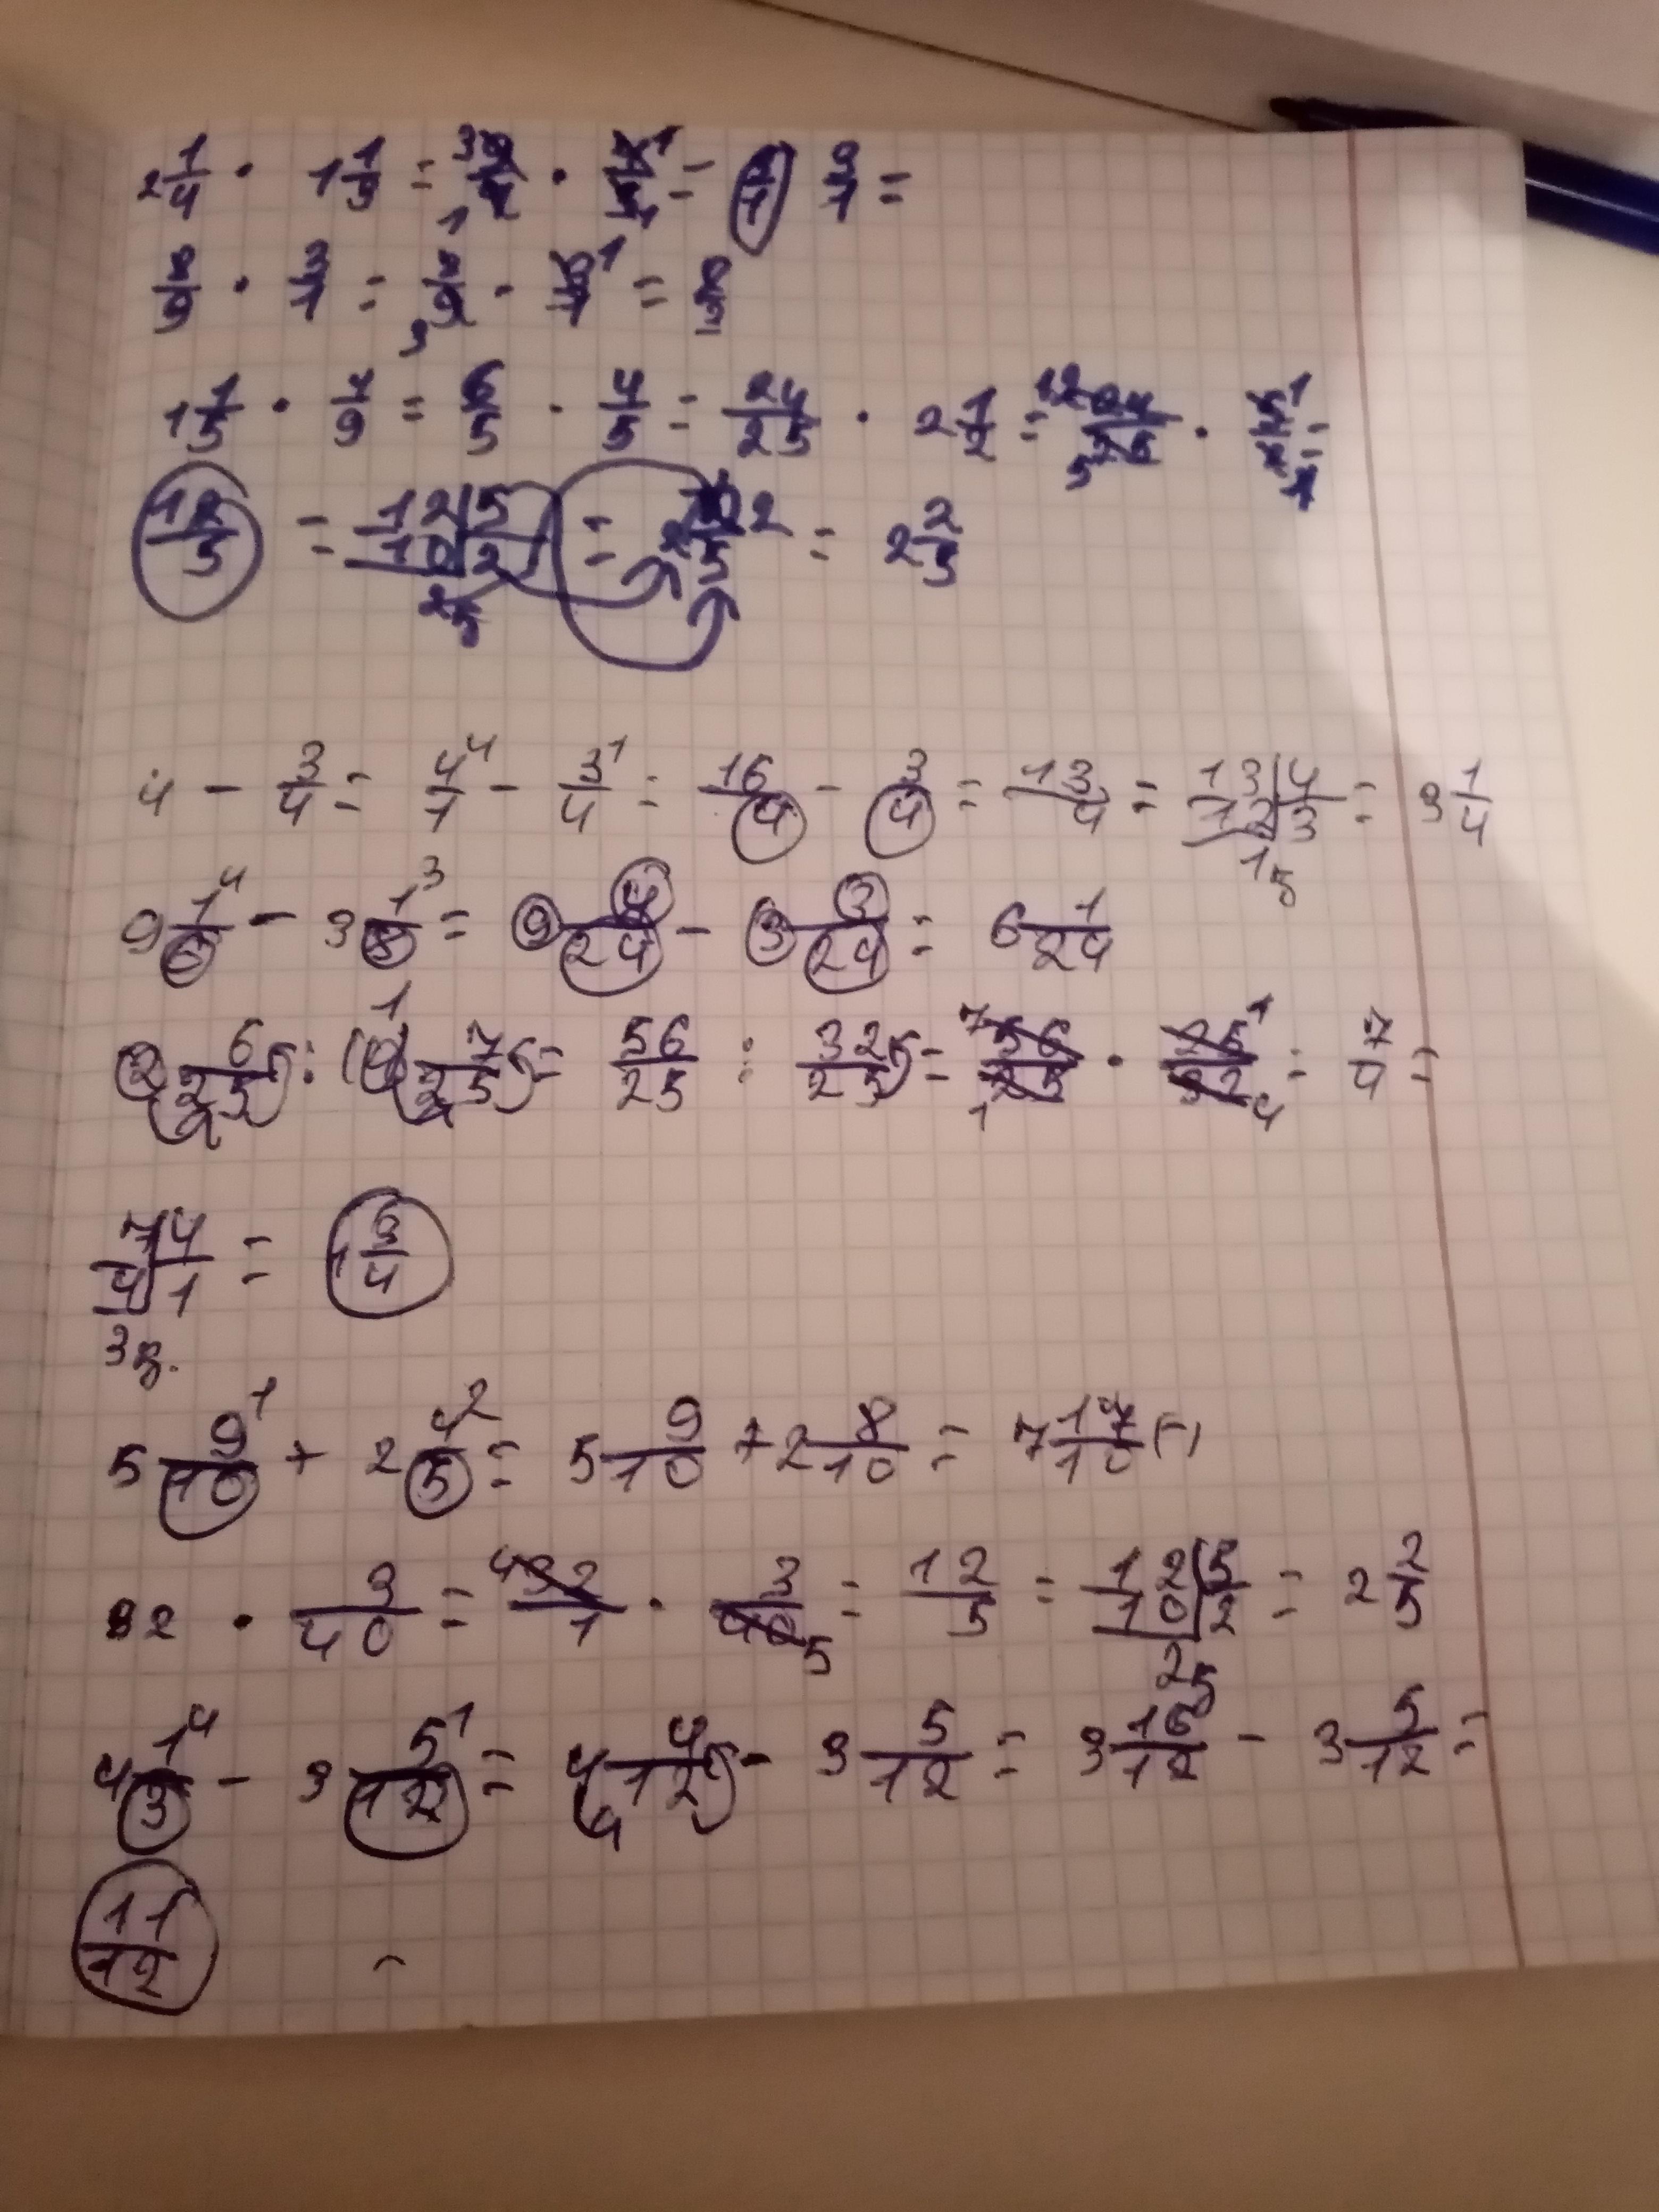 2 1/4 · 1 1/3 = 9/4 · 4/3 = 3/1 3/1 =
8/9 · 3/1 = 8/9 · 3/1 = 8/3
1 1/5 · 4/9 = 6/5 · 4/5 = 24/25 · 2 1/2 = 24/25 · 5/2 =
12/5 = 12|5 10|2 2 = 2 2/5 = 2 2/5
4 - 3/4 = 4/1 - 3/4 = 16/4 - 3/4 = 13/4 = 13|4 12|3 1 = 3 1/4
9 1/6 - 3 1/8 = 9 4/24 - 3 3/24 = 6 1/24
2 6/25 : 1 7/25 = 56/25 : 32/25 = 56/25 · 25/32 = 7/4 =
7|4 4|1 3 = 1 3/4
5 9/10 + 2 4/5 = 5 9/10 + 2 8/10 = 7 17/10 (-)
32 · 3/40 = 32/1 · 3/40 = 12/5 = 12|5 10|2 2 = 2 2/5
4 1/3 - 3 5/12 = 4 4/12 - 3 5/12 = 3 16/12 - 3 5/12 =
11/12